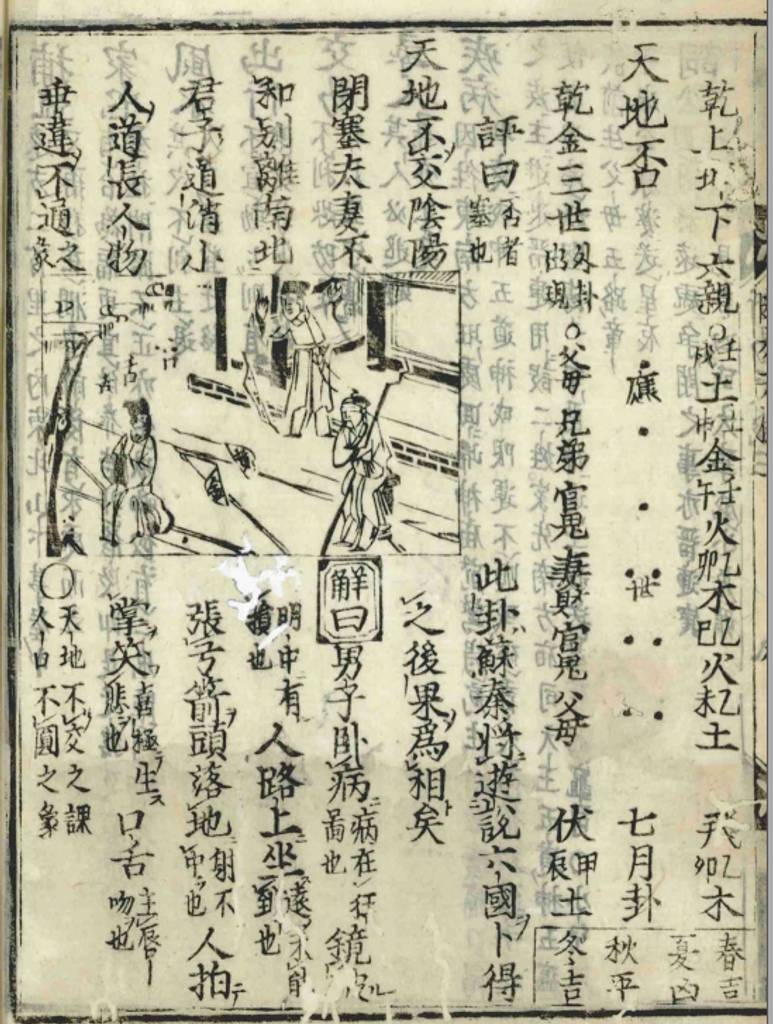 乾上坤下六親○壬戌土壬申金壬午火乙卯木乙巳火乙未土
乙卯木
春吉
夏凶
秋平
冬吉
天地否
應
世
七月卦
乾金三世外卦出現○父母兄弟官鬼妻財官鬼父母
伏甲辰土
評曰否者塞也
此卦蘇秦將遊說六國卜得
天地不交陰陽
之後果為相矣
閉塞夫妻不
解曰男子臥病病在
鏡
和別離南北
明中有
損也
人路上坐遠
到也
君子道消小
張弓箭頭落地射不中也人拍
人道長人物
掌笑喜極生悲也口舌主唇吻也
乖違不通之象
○天地不交之課
人口不圓之象